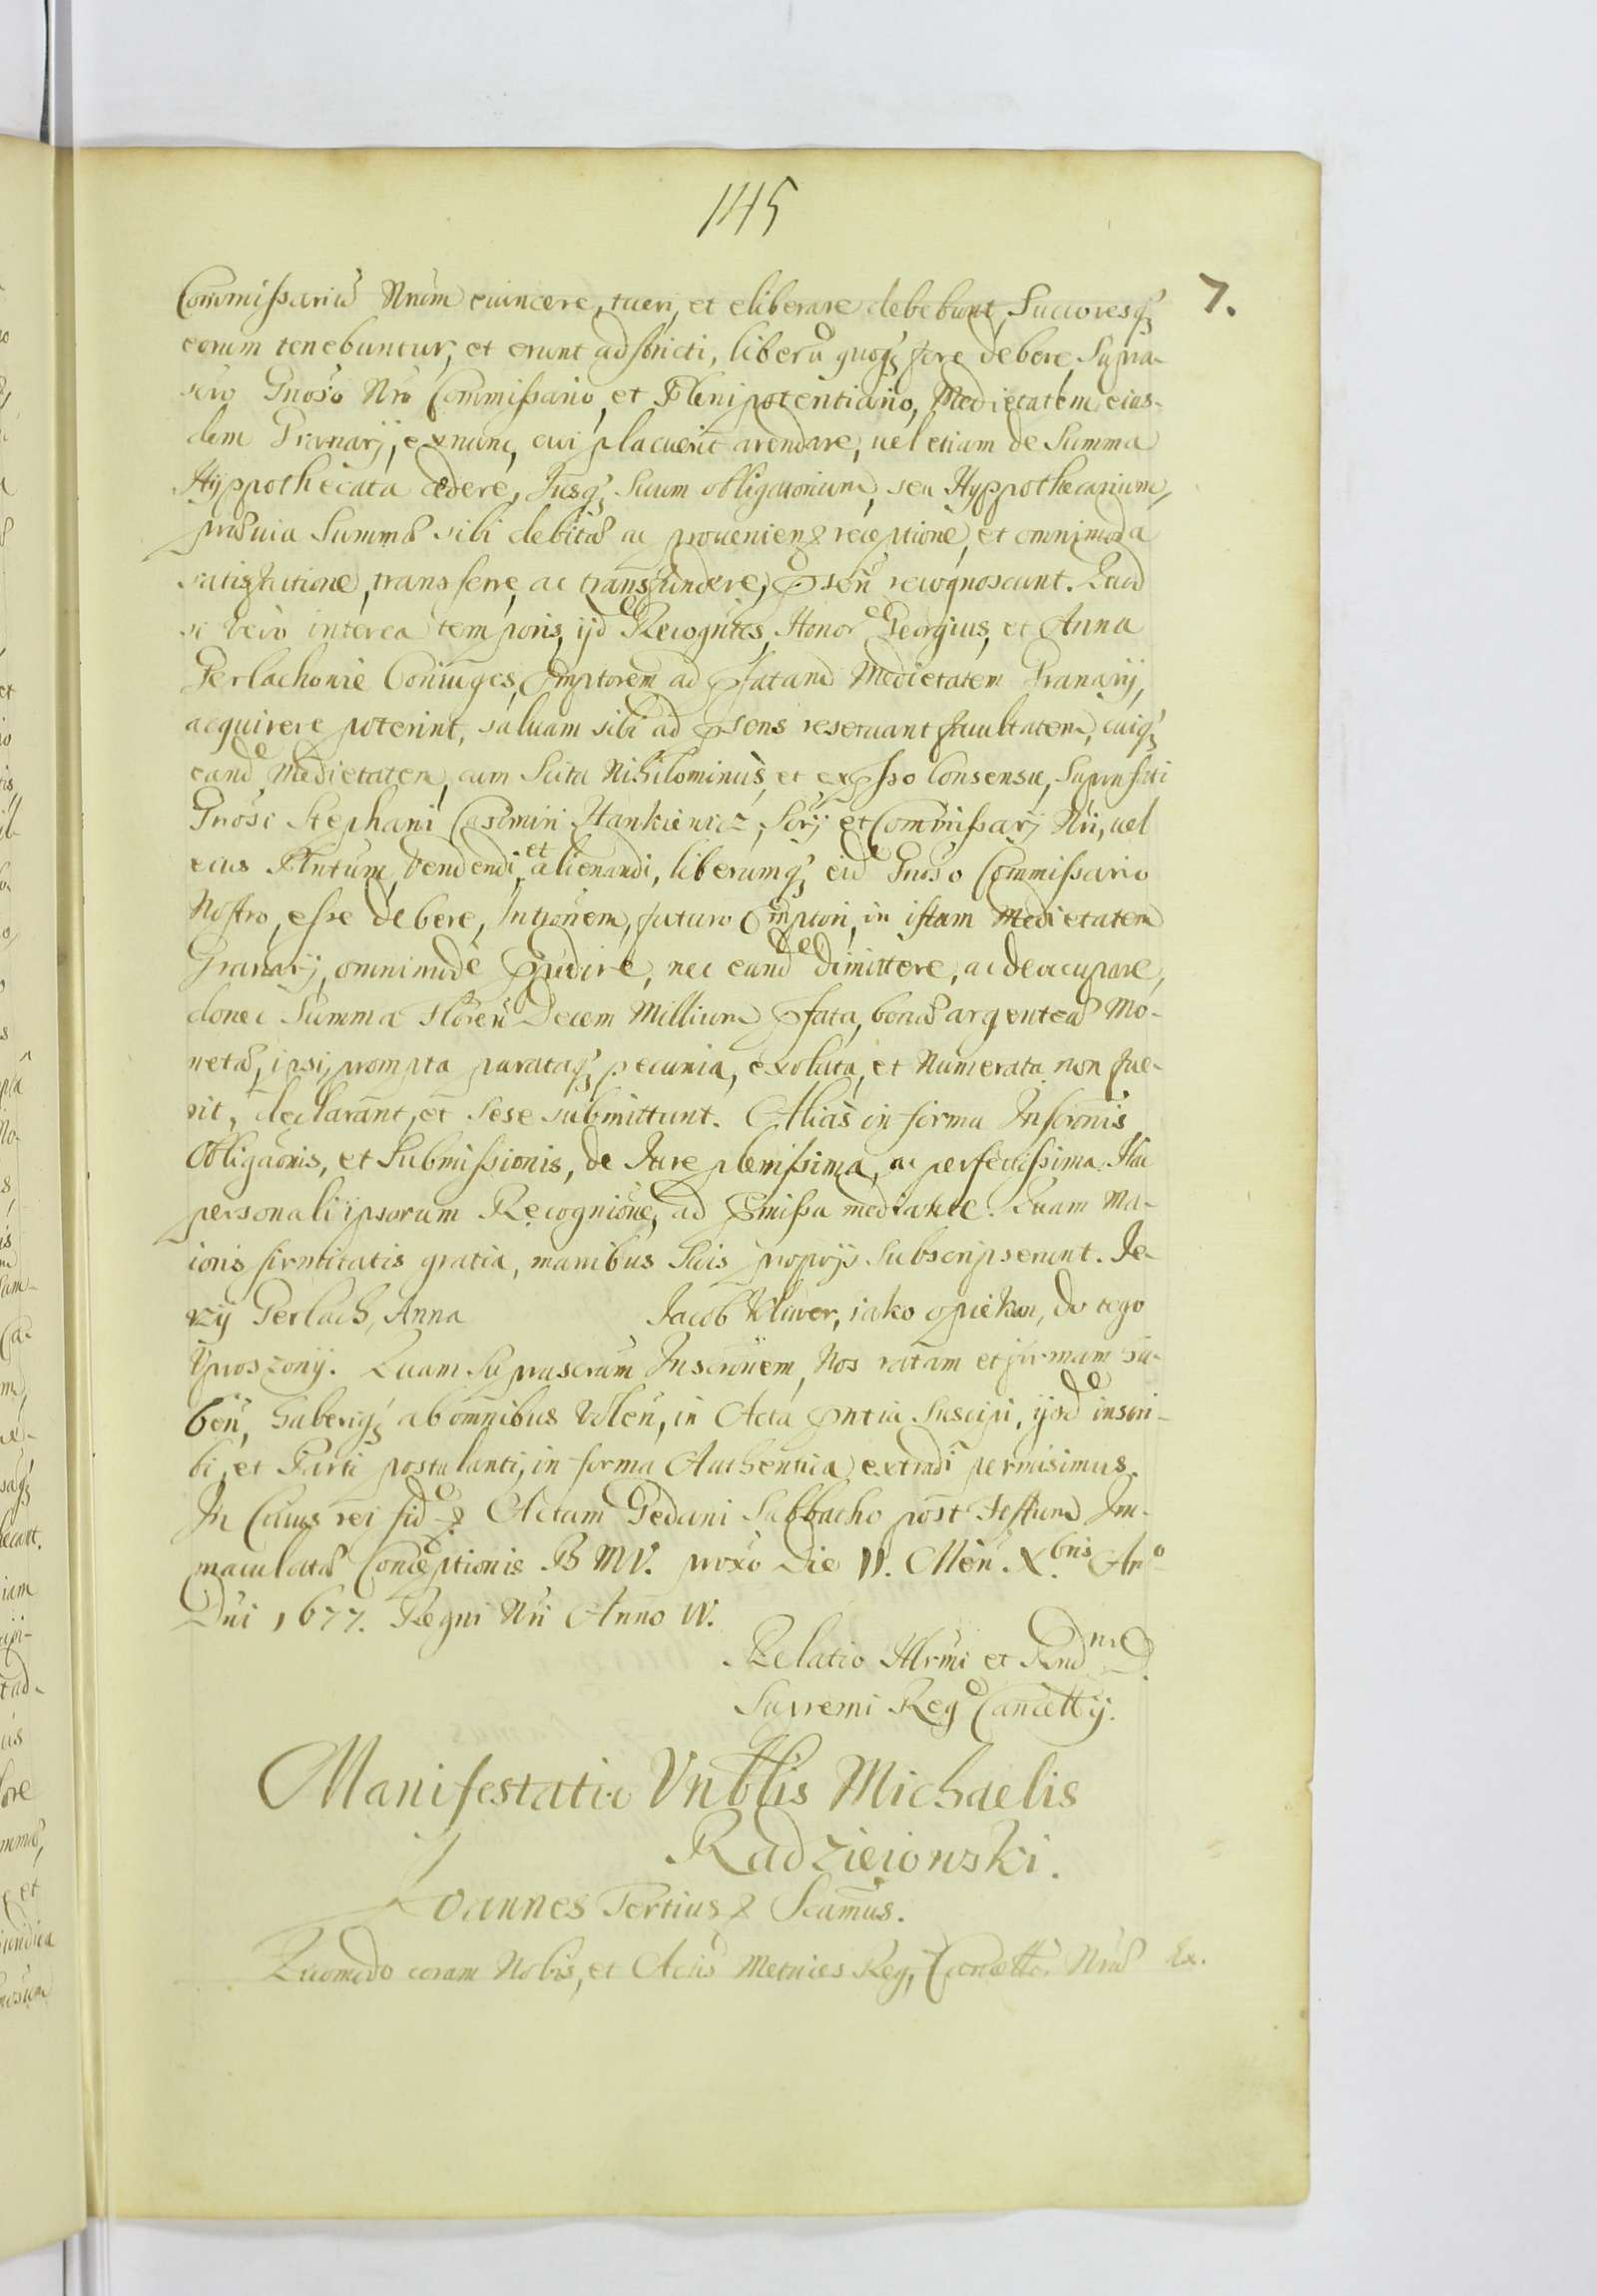 145
7.
Commissariũ Nrũm euincere, tueri, et eliberare debebunt, Succoresq3
eorum tenebuntur, et erunt adstricti, liberũ quoq3 fore debere, Supra-
scro Gnoso Nro Commissario, et Plenipotentiario, Medietatem eius-
dem Granarij, exnunc, cui placuerit arendare, uel etiam de Summa
Hyppothecata cedere, Jusq3 suum obligatorium, seu Hyppothecarium,
præuia Summæ sibi debitæ ac prouenien. receptione, et omnimoda
satisfactione, transferre, ac transfundere, psen̄ recognoscunt. Quod
si vero interea temporis, ijd Recogn̄tes, Honor Georgius, et Anna
Gerlachowie Coniuges, Emptorem ad pfatam Medietatem Granarij,
acquirere poterint, saluam sibi ad psons reseruant facultatem, cuiq3
eand Medietatem, cum Scitu Nihilominus, et expsso Consensu, Suprascti
Gnosi Stephani Casimiri Hankiewicz, Scrij et Commissarij Nri, uel
eius Plntum, Vendendi, et alienandi, liberumq3 eid Gnoso Commissario
Nostro, esse debere, Intronem, futuro Emptori, in istam Medietatem
Granarij, omnimode ppedire, nec eand dimittere, ac deoccupare,
donec Summa Floren̄ Decem Millium pfata, bonæ argenteæ Mo-
netæ, ipsi, prompta parataq3 pecunia, exoluta, et Numerata non fue-
rit, declarant, et sese submittunt. Alias in forma Inscronis
Obligaonis, et Submissionis, de Jure plenissima, ac perfectissima. Hac
personali ipsorum Recognione, ad pmissa mediante. Quam ma-
ioris firmitatis gratia, manibus suis proprijs subscripserunt. Je-
rzy Gerlach, Anna Jacob Oliwer, iako opiekun, do tego
vproszony. Quam Suprascram Inscronem, Nos ratam et firmam ha-
beri, haberiq3 ab omnibus Volen̄, in Acta pntia suscipi, ijsd inscri-
bi, et Parti postulanti, in forma Authentica extradi permisimus.
In Cuius rei fid Actum Gedani Sabbatho post Festum Im-
maculatæ Conceptionis B M V. proxo Die 11. Men. Xbris Ano
Dni 1677. Regni Nri Anno IV.
Relatio Illrmi et Rnd
Supremi Reg Cancellrij.
Manifestatio Vrblis Michaelis
Radzieiowski.
Joannes Tertius Scamus.
Quomodo coram Nobis, et Actis Metrices Reg, Cancell Nræ Ex.